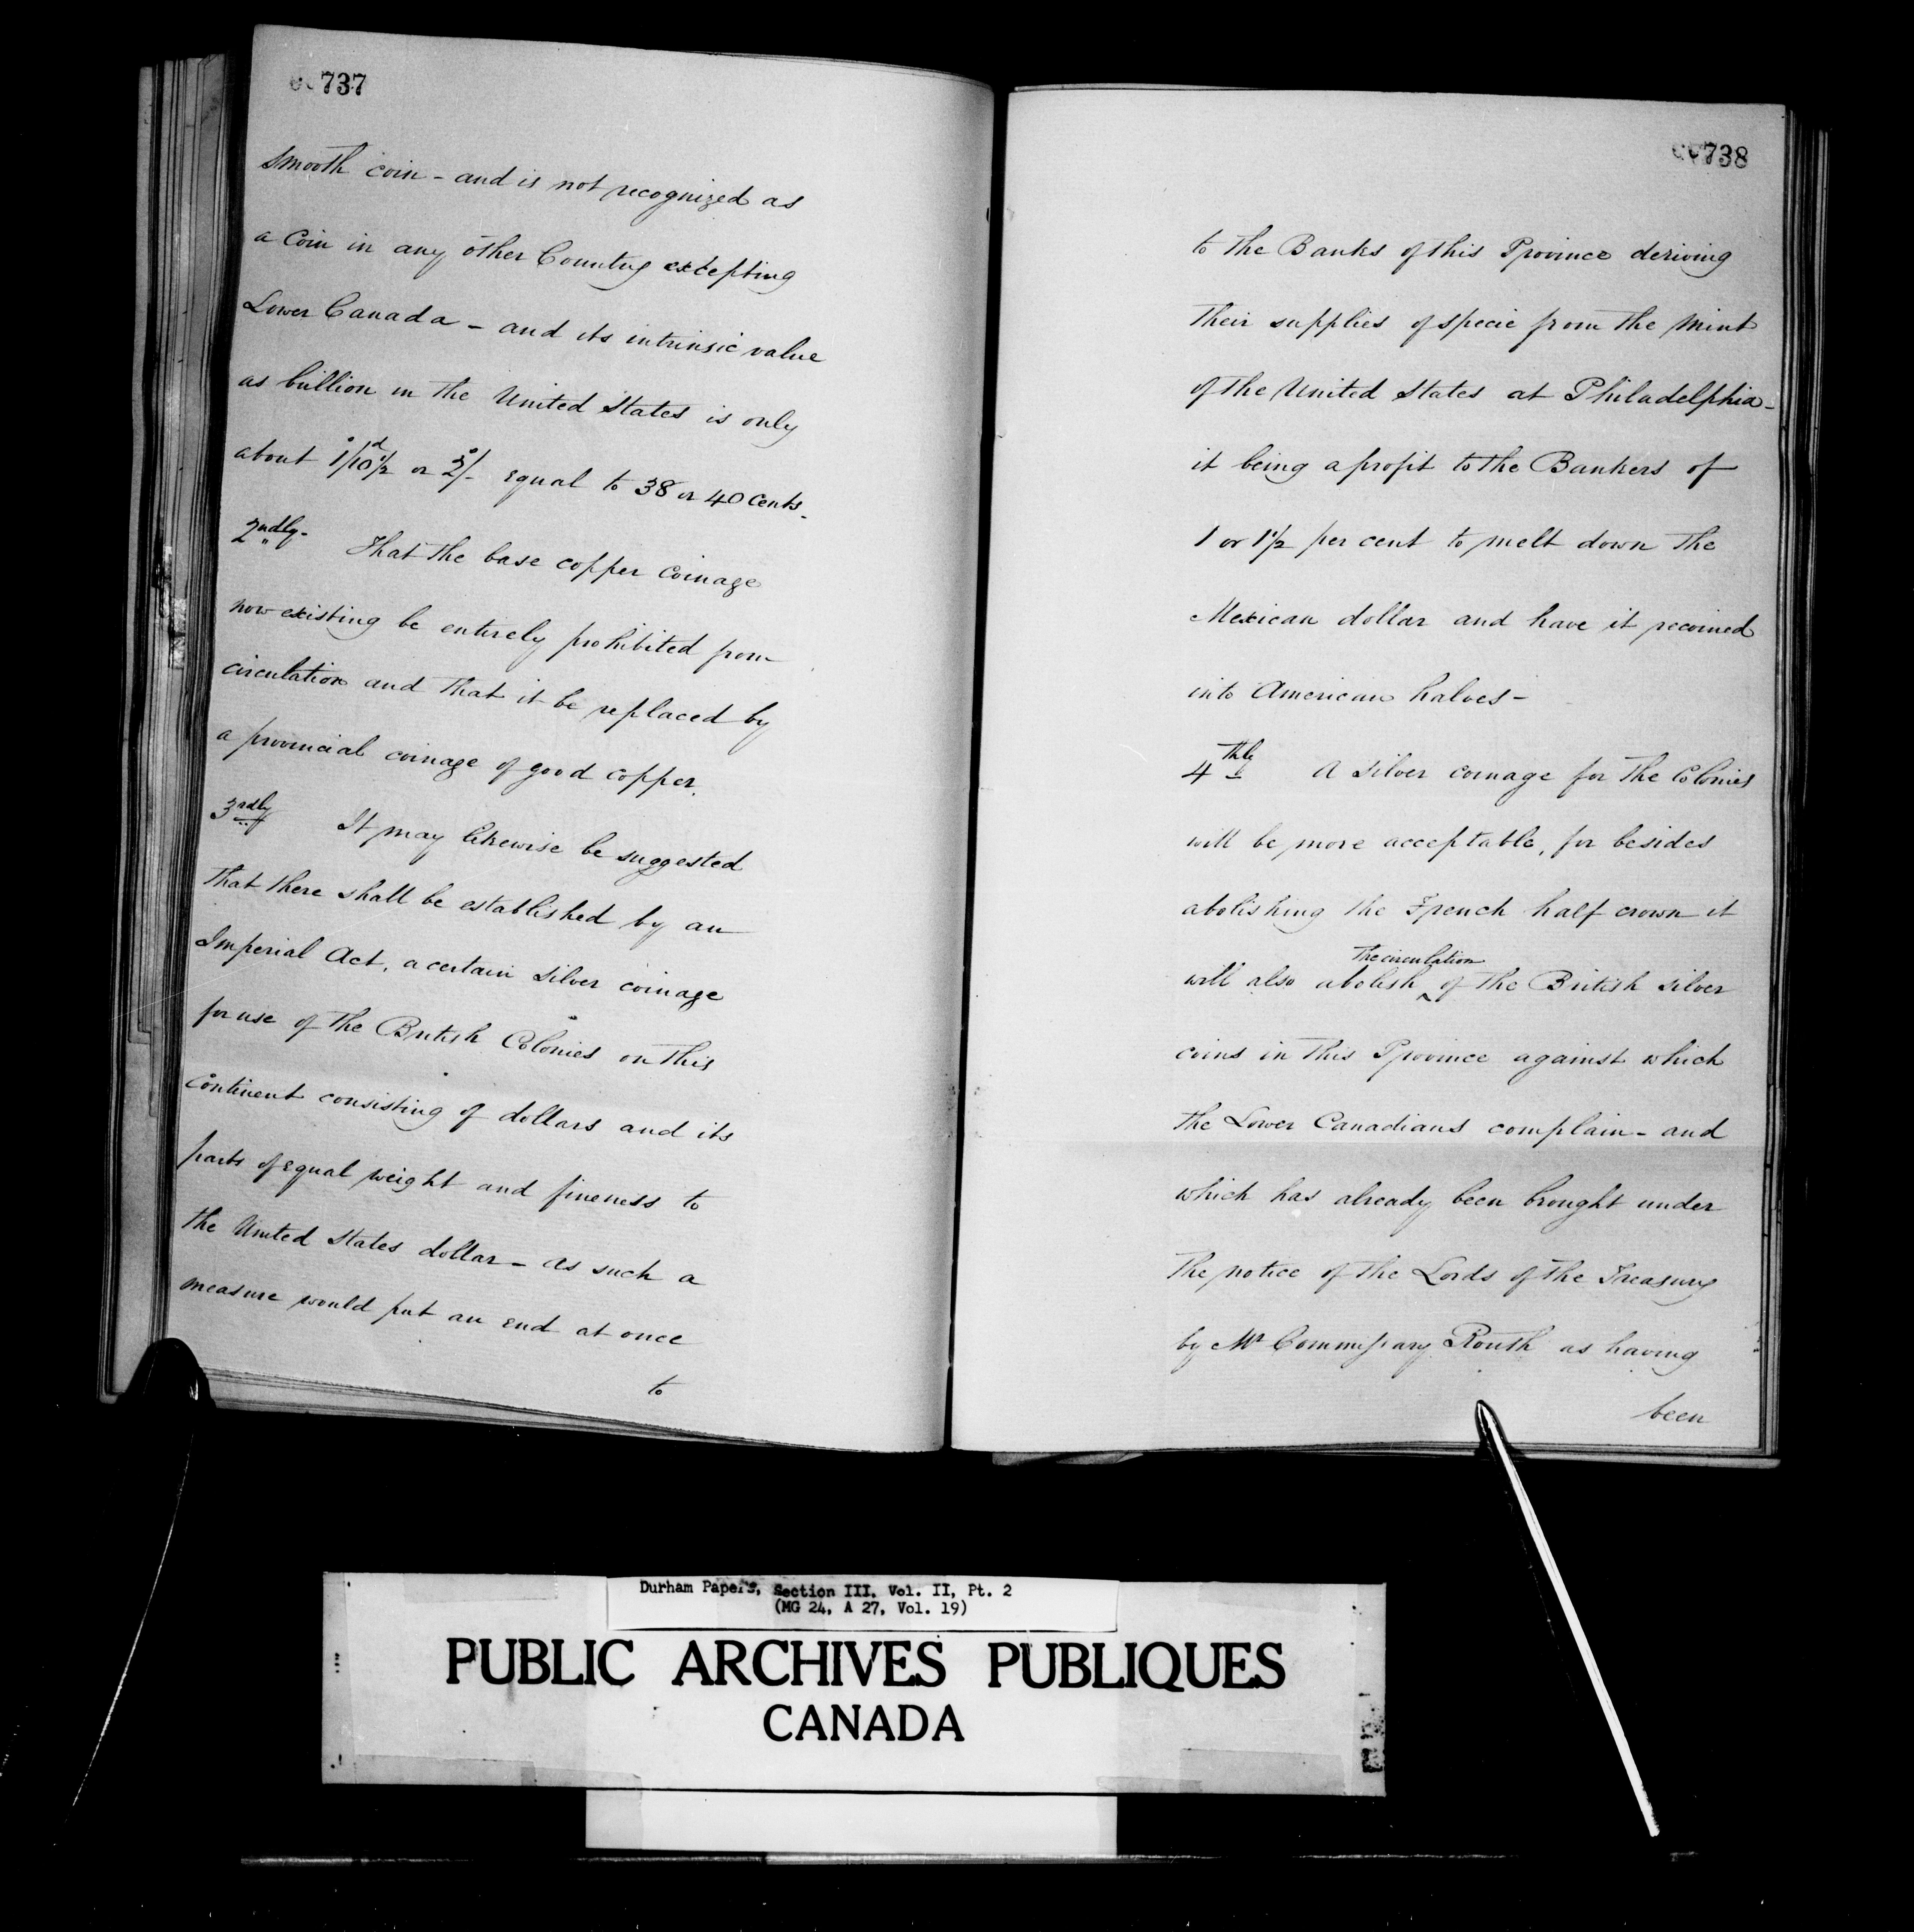 737
smooth coin - and is not recognized as
a Coin in any other Country excepting
Lower Canada - and its intrinsic value
as bullion in the United States is only
about 1/10½ or 2/- equal to 38 or 40 Cents.
2ndly. That the base copper coinage
now existing be entirely prohibited from
circulation and that it be replaced by
a provincial coinage of good copper.
3rdly It may likewise be suggested
that there shall be established by an
Imperial Act, a certain silver coinage
for use of the British Colonies on this
Continent consisting of dollars and its
parts of equal weight and fineness to
the United States dollar - as such a
measure would put an end at once
to
738
to the Banks of this Province deriving
their supplies of specie from the Mint
of the United States at Philadelphia -
it being a profit to the Bankers of
1 or 1½ per cent to melt down the
Mexican dollar and have it recoined
into American halves -
4thly A silver coinage for the Colonies
will be more acceptable, for besides
abolishing the French half crown it
will also abolish the circulation of the British silver
coins in this Province against which
the Lower Canadians complain - and
which has already been brought under
the notice of the Lords of the Treasury
by Mr Commissary Routh as having
been
Durham Papers, Section III, Vol. II, Pt. 2
(MG 24, A 27, Vol. 19)
PUBLIC ARCHIVES PUBLIQUES
CANADA